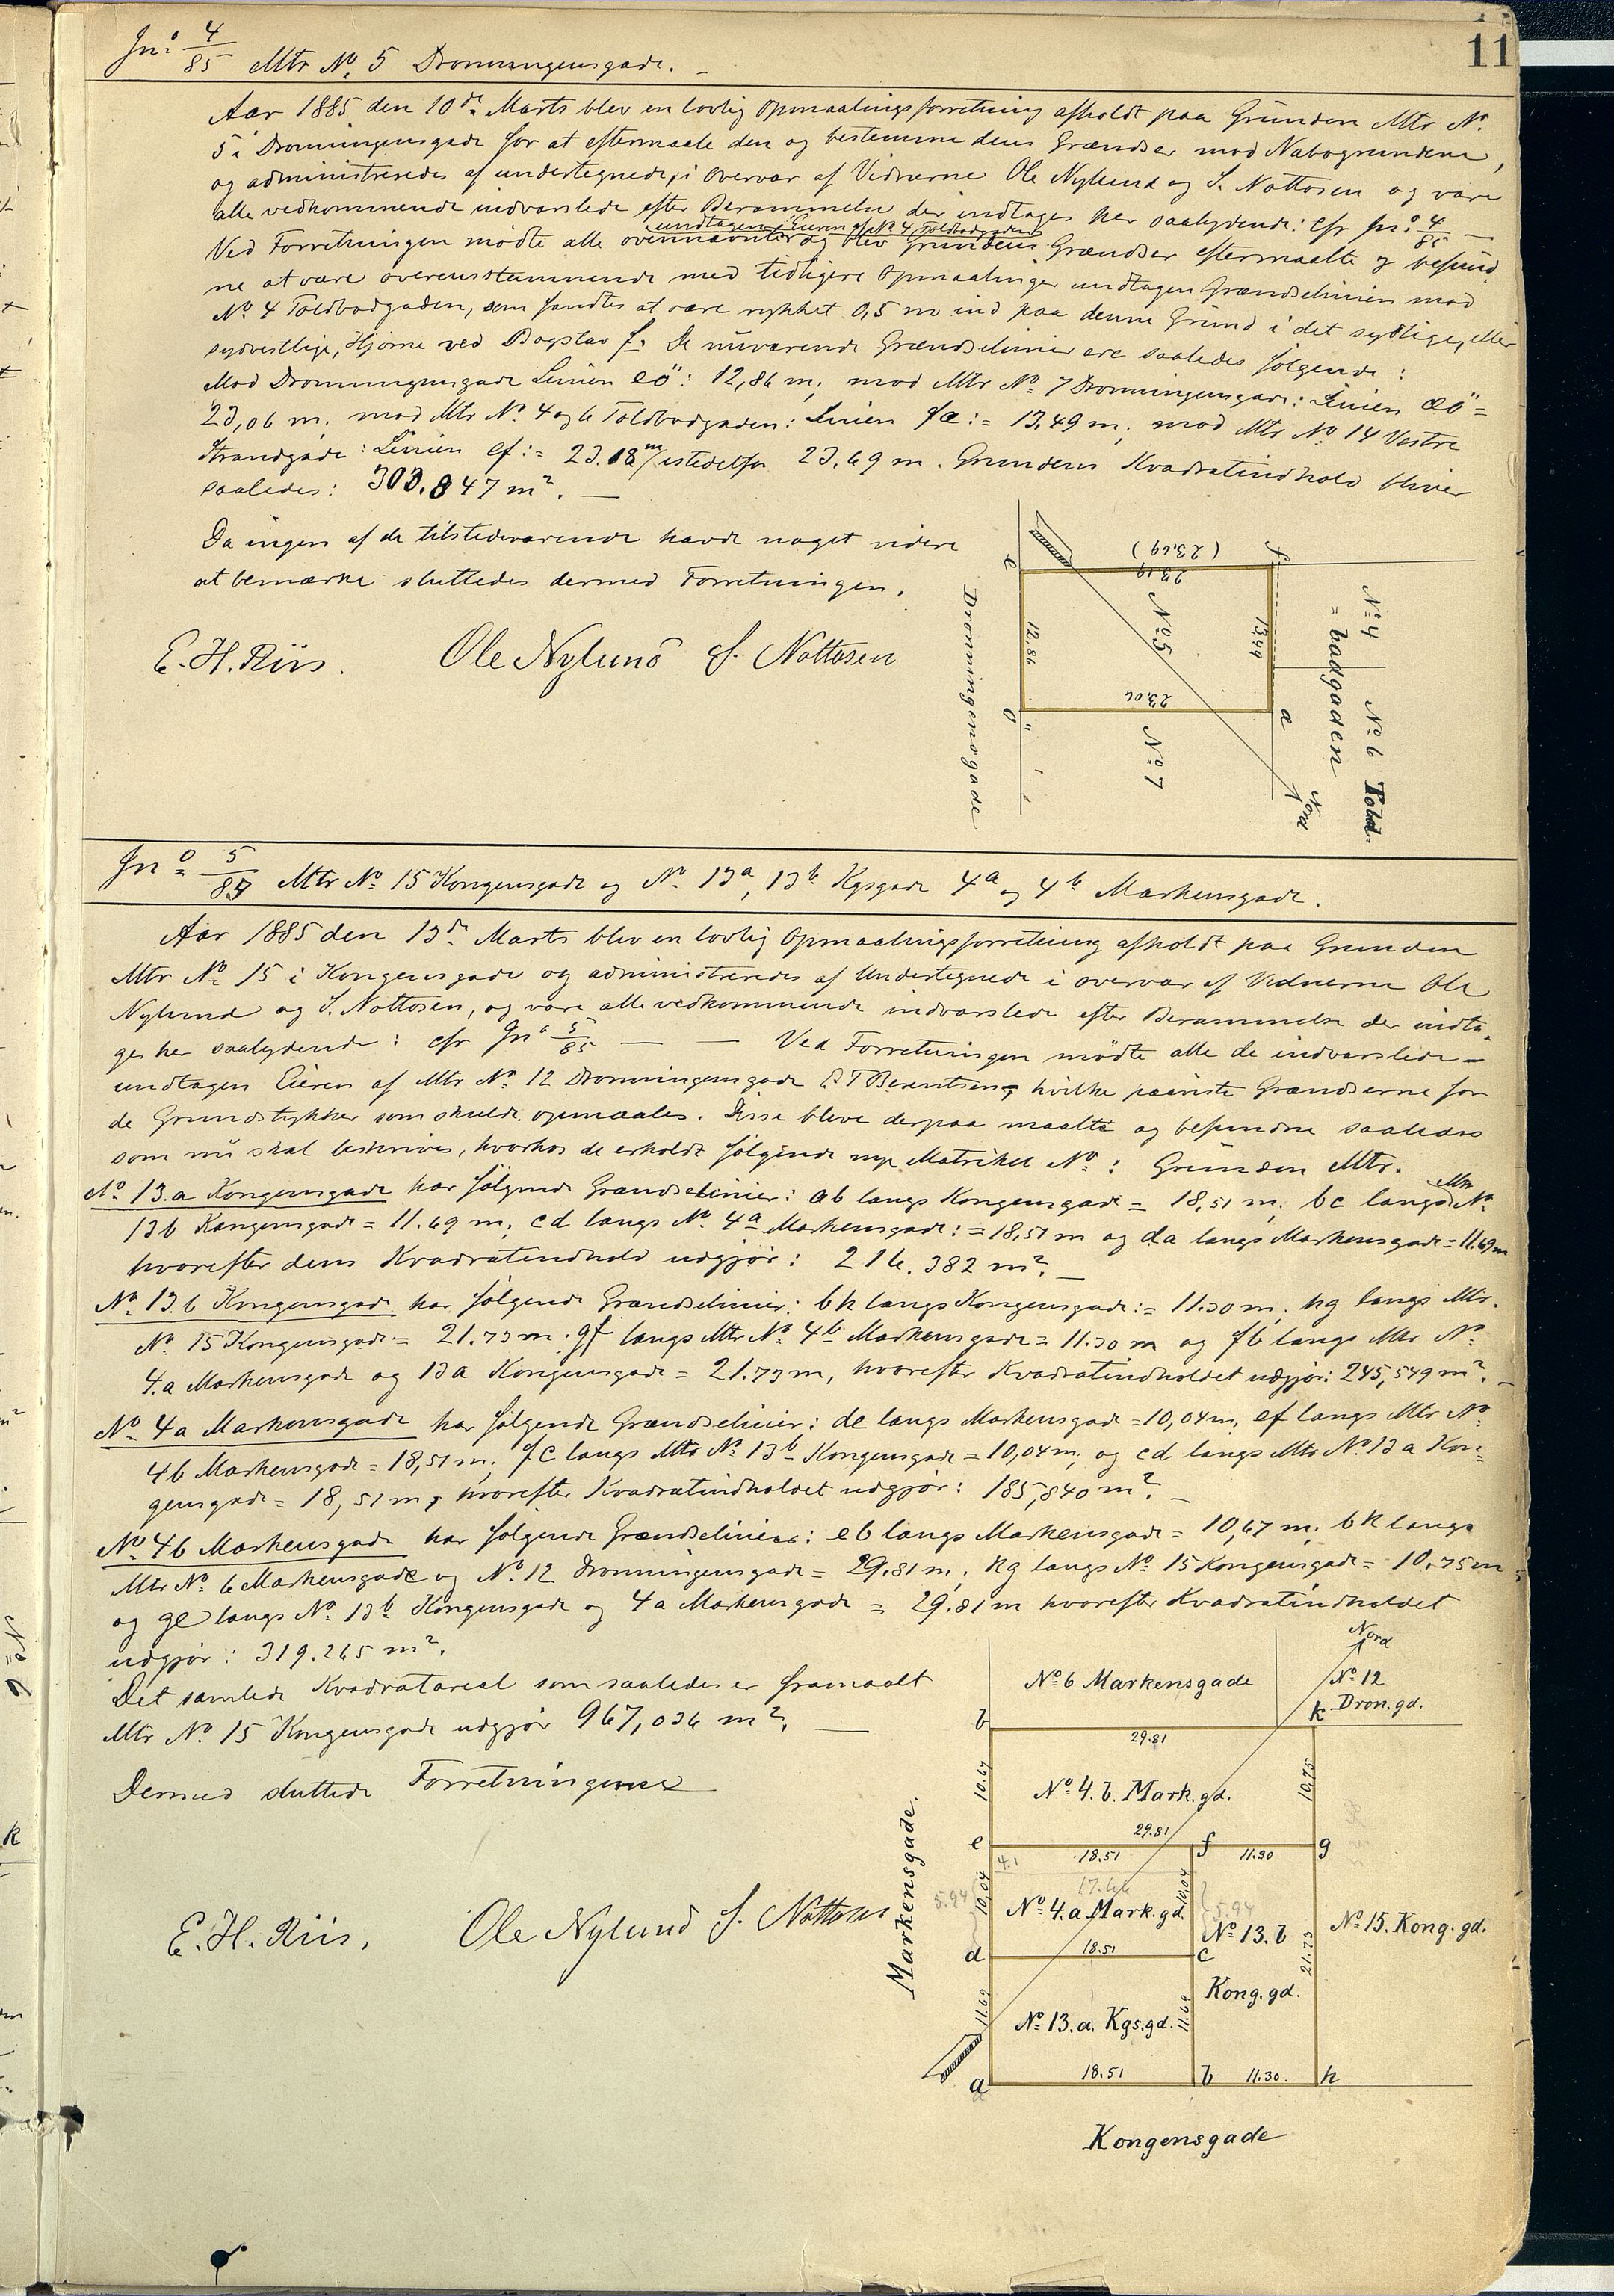 11
Jn:o 4/85 Mtr No. 5 Dronningensgade.
Aar 1885 den 10de Marts blev en lovlig Opmaalingsforretning afholdt paa Grunden Mtr No.
5 i Dronningensgade for at eftermaale den og bestemme dens Grændser mod Nabogrundene,
og administreredes af undertegnede, i Overvær af Vidnerne Ole Nylund og S. Nottosen og vare
alle vedkommende indvarslede efter Berammelse der indtages her saalydende: cfr Jn:o 4/85 —
undtagen Eieren af No 4 Toldbodgaden
Ved Forretningen mödte alle ovennævnte og blev Grundens Grændser eftermaalte og befund
ne at være overensstemmende med tidligere Opmaalinger undtagen Grændselinien mod
No. 4 Toldbodgaden, som fandtes at være rykket 0,5 m ind paa denne Grund i det sydlige, eller
sydvestlige, Hjörne ved Bogstav f. De nuværende Grændselinier ere saaledes fölgende:
Mod Dronningensgade Linien eö: 12,86 m; mod Mtr No. 7 Dronningensgade: Linien æö =
23,06 m. mod Mtr No. 4 og 6 Toldbodgaden: Linien fæ: = 13,49 m; mod Mtr No 14 Vestre
Strandgade: Linien ef: = 23.18 m/istedetfor 23.69 m. Grundens Kvadratindhold bliver
saaledes: 303.847 m2. —
Da ingen af de tilstedeværende havde noget videre
at bemærke sluttedes dermed Forretningen.
E. H. Riis. Ole Nylund S. Nottosen
e
(23.69)
f
23.19
12.86
No. 5
13.49
23.06
ö
æ
No. 7
Dronningensgade
No. 4
No. 6 Told=
=bodgaden
Nord
Jn:o 5/85 Mtr No. 15 Kongensgade og No. 13a, 13b Kgsgade 4a og 4b Markensgade.
Aar 1885 den 13de Marts blev en lovlig Opmaalingsforretning afholdt paa Grunden
Mtr No. 15 i Kongensgade og administreredes af Undertegnede i overvær af Vidnerne Ole
Nylund og S. Nottosen, og vare alle vedkommende indvarslede efter Berammelse der indta=
ges her saalydende: cfr Jno 5/85 — — Ved Forretningen mödte alle de indvarslede —
undtagen Eieren af Mtr No. 12 Dronningensgade Berentsen, hvilke paaviste Grændserne for
de Grundstykker som skulde opmaales. Disse bleve derpaa maalte og befundne saaledes
som nu skal beskrives, hvorhos de erholdt fölgende nye Matrikel No: Grunden Mtr.
No. 13.a Kongensgade har fölgende Grændselinier: ab langs Kongensgade = 18,51 m; bc langs Mtr No
13b Kongensgade = 11.69 m; cd langs No. 4a Markensgade: = 18,51 m og da langs Markensgade = 11.69 m
hvorefter dens Kvadratindhold udgjör: 216.382 m2. —
No. 13.b Kongensgade har fölgende Grændselinier: bh langs Kongensgade: = 11.30 m; hg langs Mtr.
No. 15 Kongensgade = 21.73 m; gf langs Mtr No. 4b Markensgade = 11.30 m og fb langs Mtr No.
4.a Markensgade og 13a Kongensgade = 21.73 m, hvorefter Kvadratindholdet udgjör: 245,549 m2. —
No. 4a Markensgade har fölgende Grændselinier: de langs Markensgade = 10,04 m; ef langs Mtr No.
4b Markensgade = 18,51 m; fc langs Mtr No. 13b Kongensgade = 10,04 m; og cd langs Mtr No 13a Kon=
gensgade = 18,51 m, hvorefter Kvadratindholdet udgjör: 185,840 m2. —
No. 4b Markensgade har fölgende Grændselinier: eb langs Markensgade = 10,67 m; bk langs
Mtr No. 6 Markensgade og No. 12 Dronningensgade = 29.81 m; kg langs No. 15 Kongensgade = 10.75 m
og ge langs No. 13b Kongensgade og 4a Markensgade = 29.81 m hvorefter Kvadratindholdet
udgjör: 319.265 m2.
Det samlede Kvadratareal som saaledes er framaalt
Mtr No. 15 Kongensgade udgjör 967,036 m2. —
Dermed sluttede Forretningen
E. H. Riis. Ole Nylund S. Nottosen
Nord
No. 6 Markensgade
No. 12
Dron. gd.
b
k
29.81
10.67
No. 4. b. Mark. gd.
10.75
29.81
e
f
g
4.1
18.51
11.30
17.44
5.94
10,04
No. 4. a Mark. gd.
10,04
5.94
No. 13. b
Kong. gd.
No. 15. Kong. gd.
21.73
d
18.51
c
11.69
No. 13. a. Kgs. gd.
11.69
a
18.51
b
11.30.
h
Markensgade.
Kongensgade